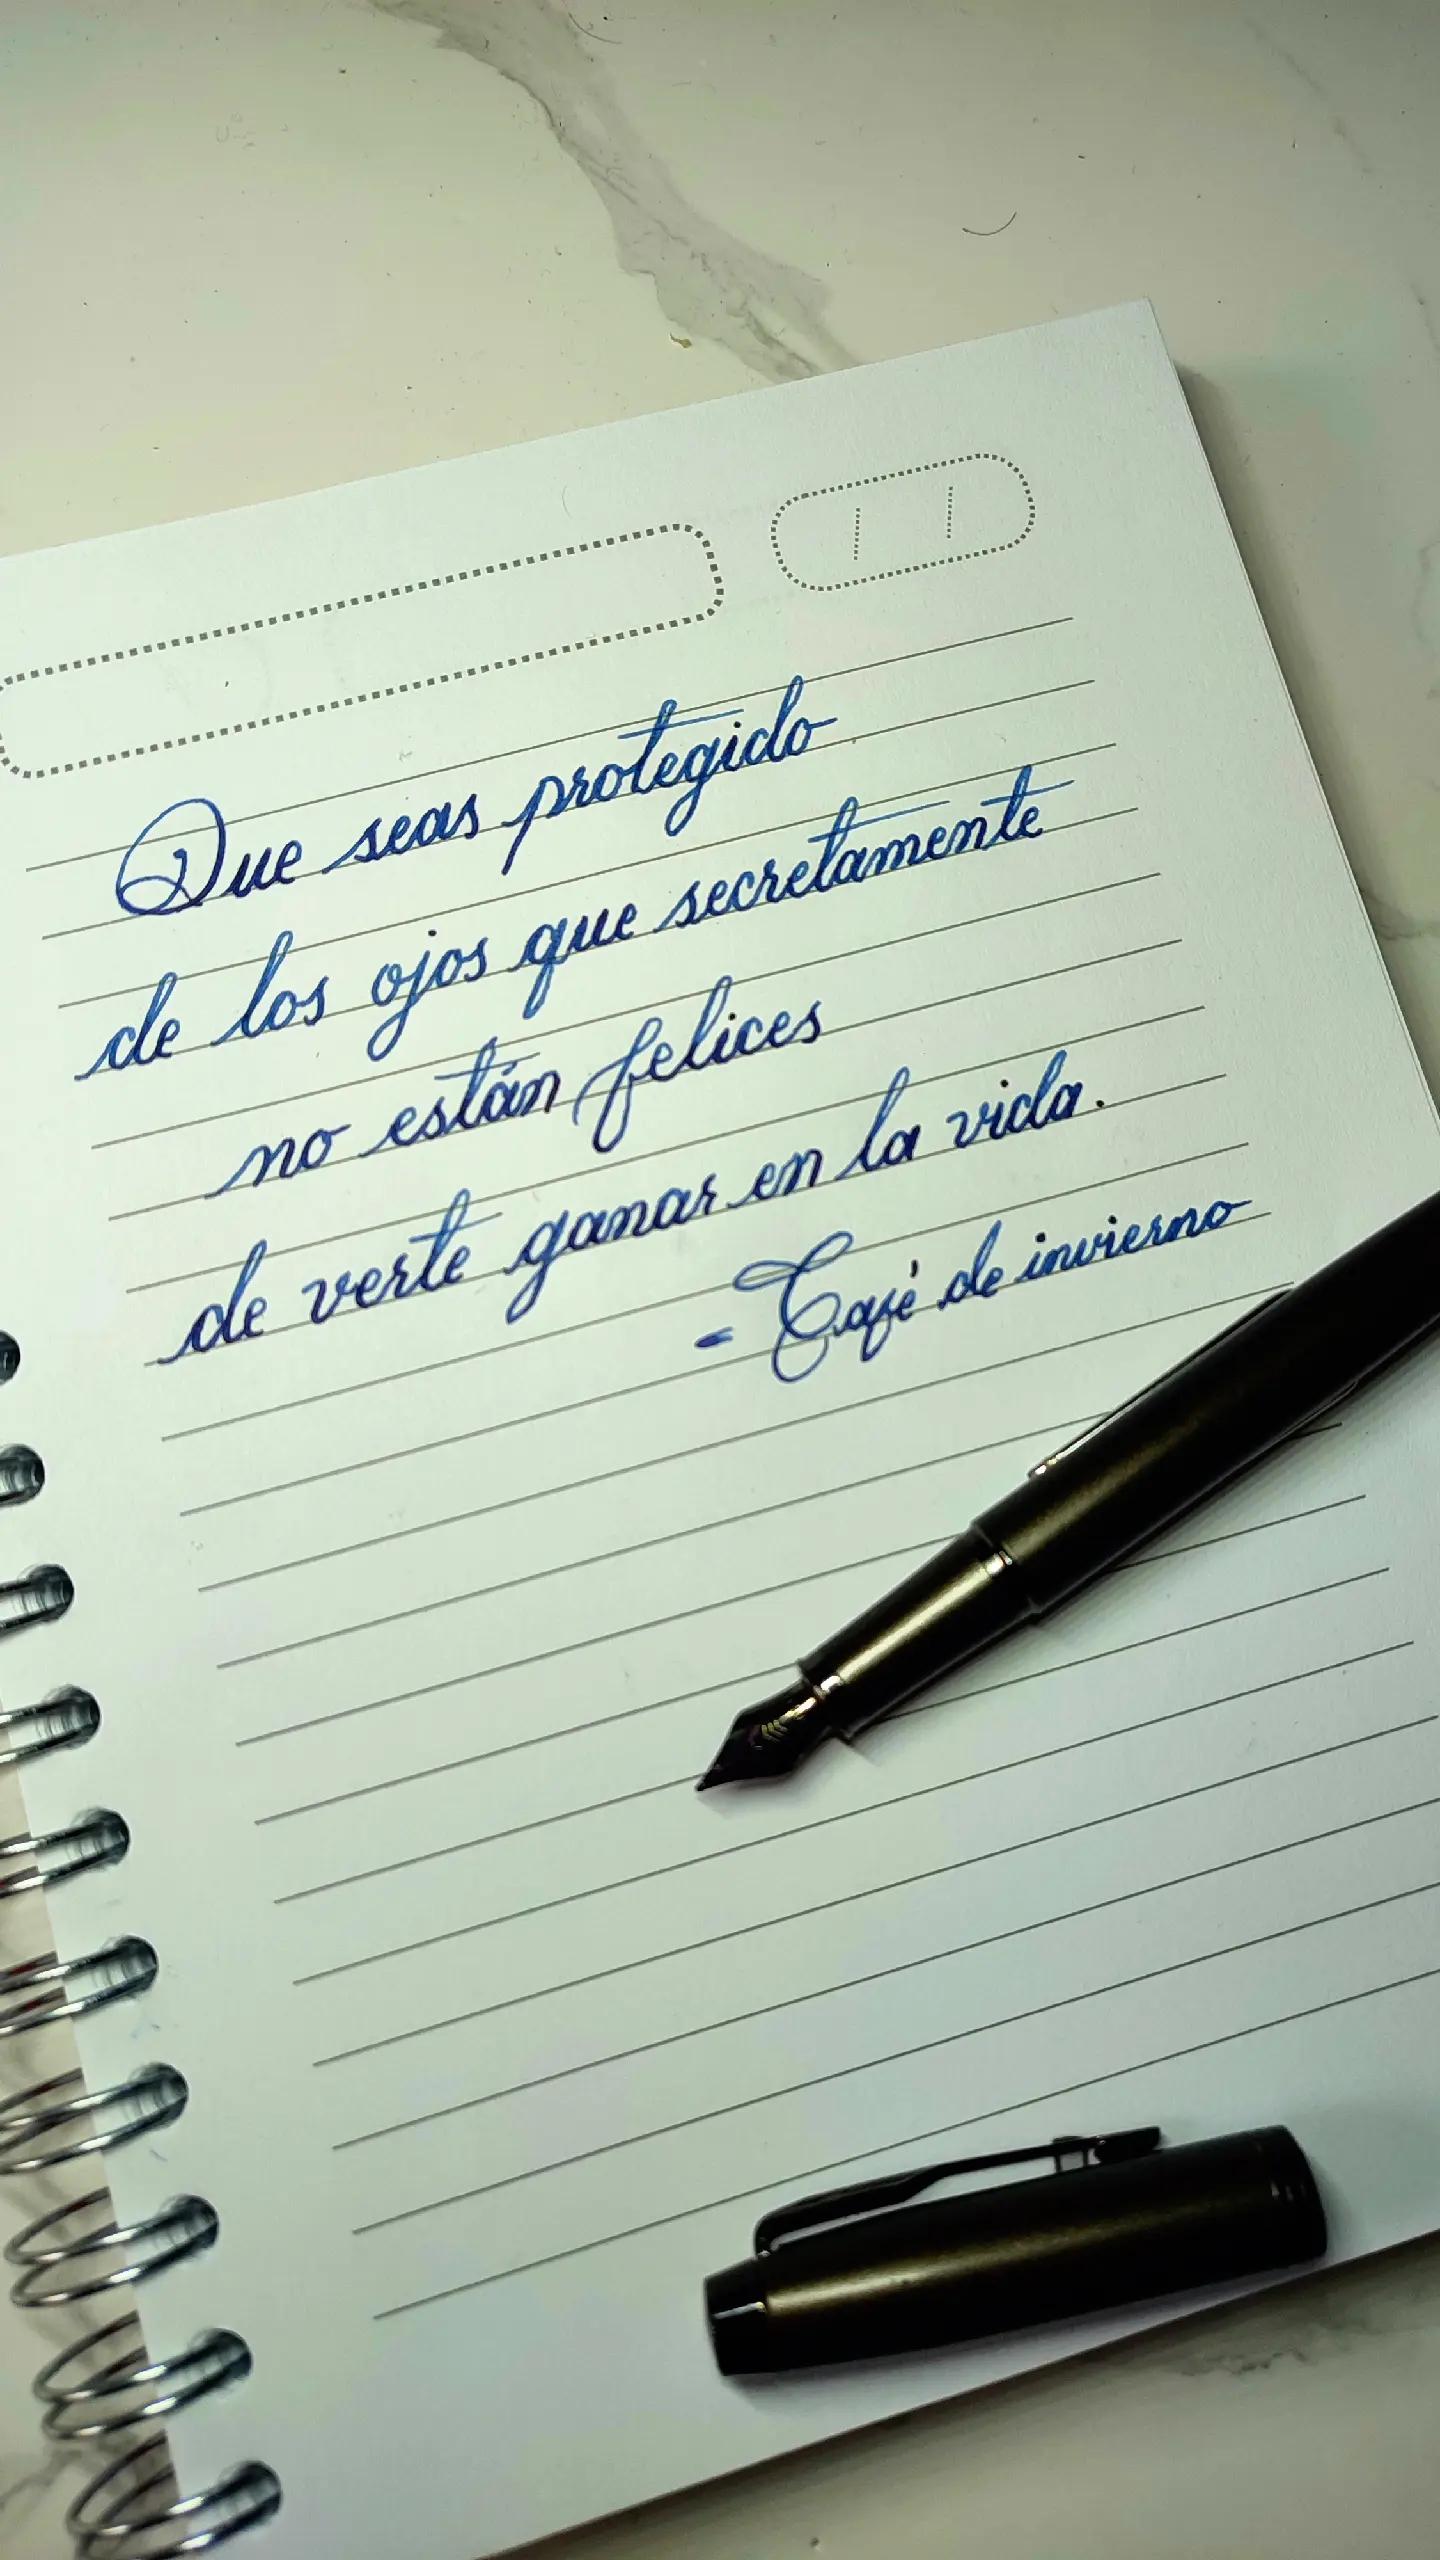 Que seas protegido
de los ojos que secretamente
no están felices
de verte ganar en la vida.
- Café de invierno